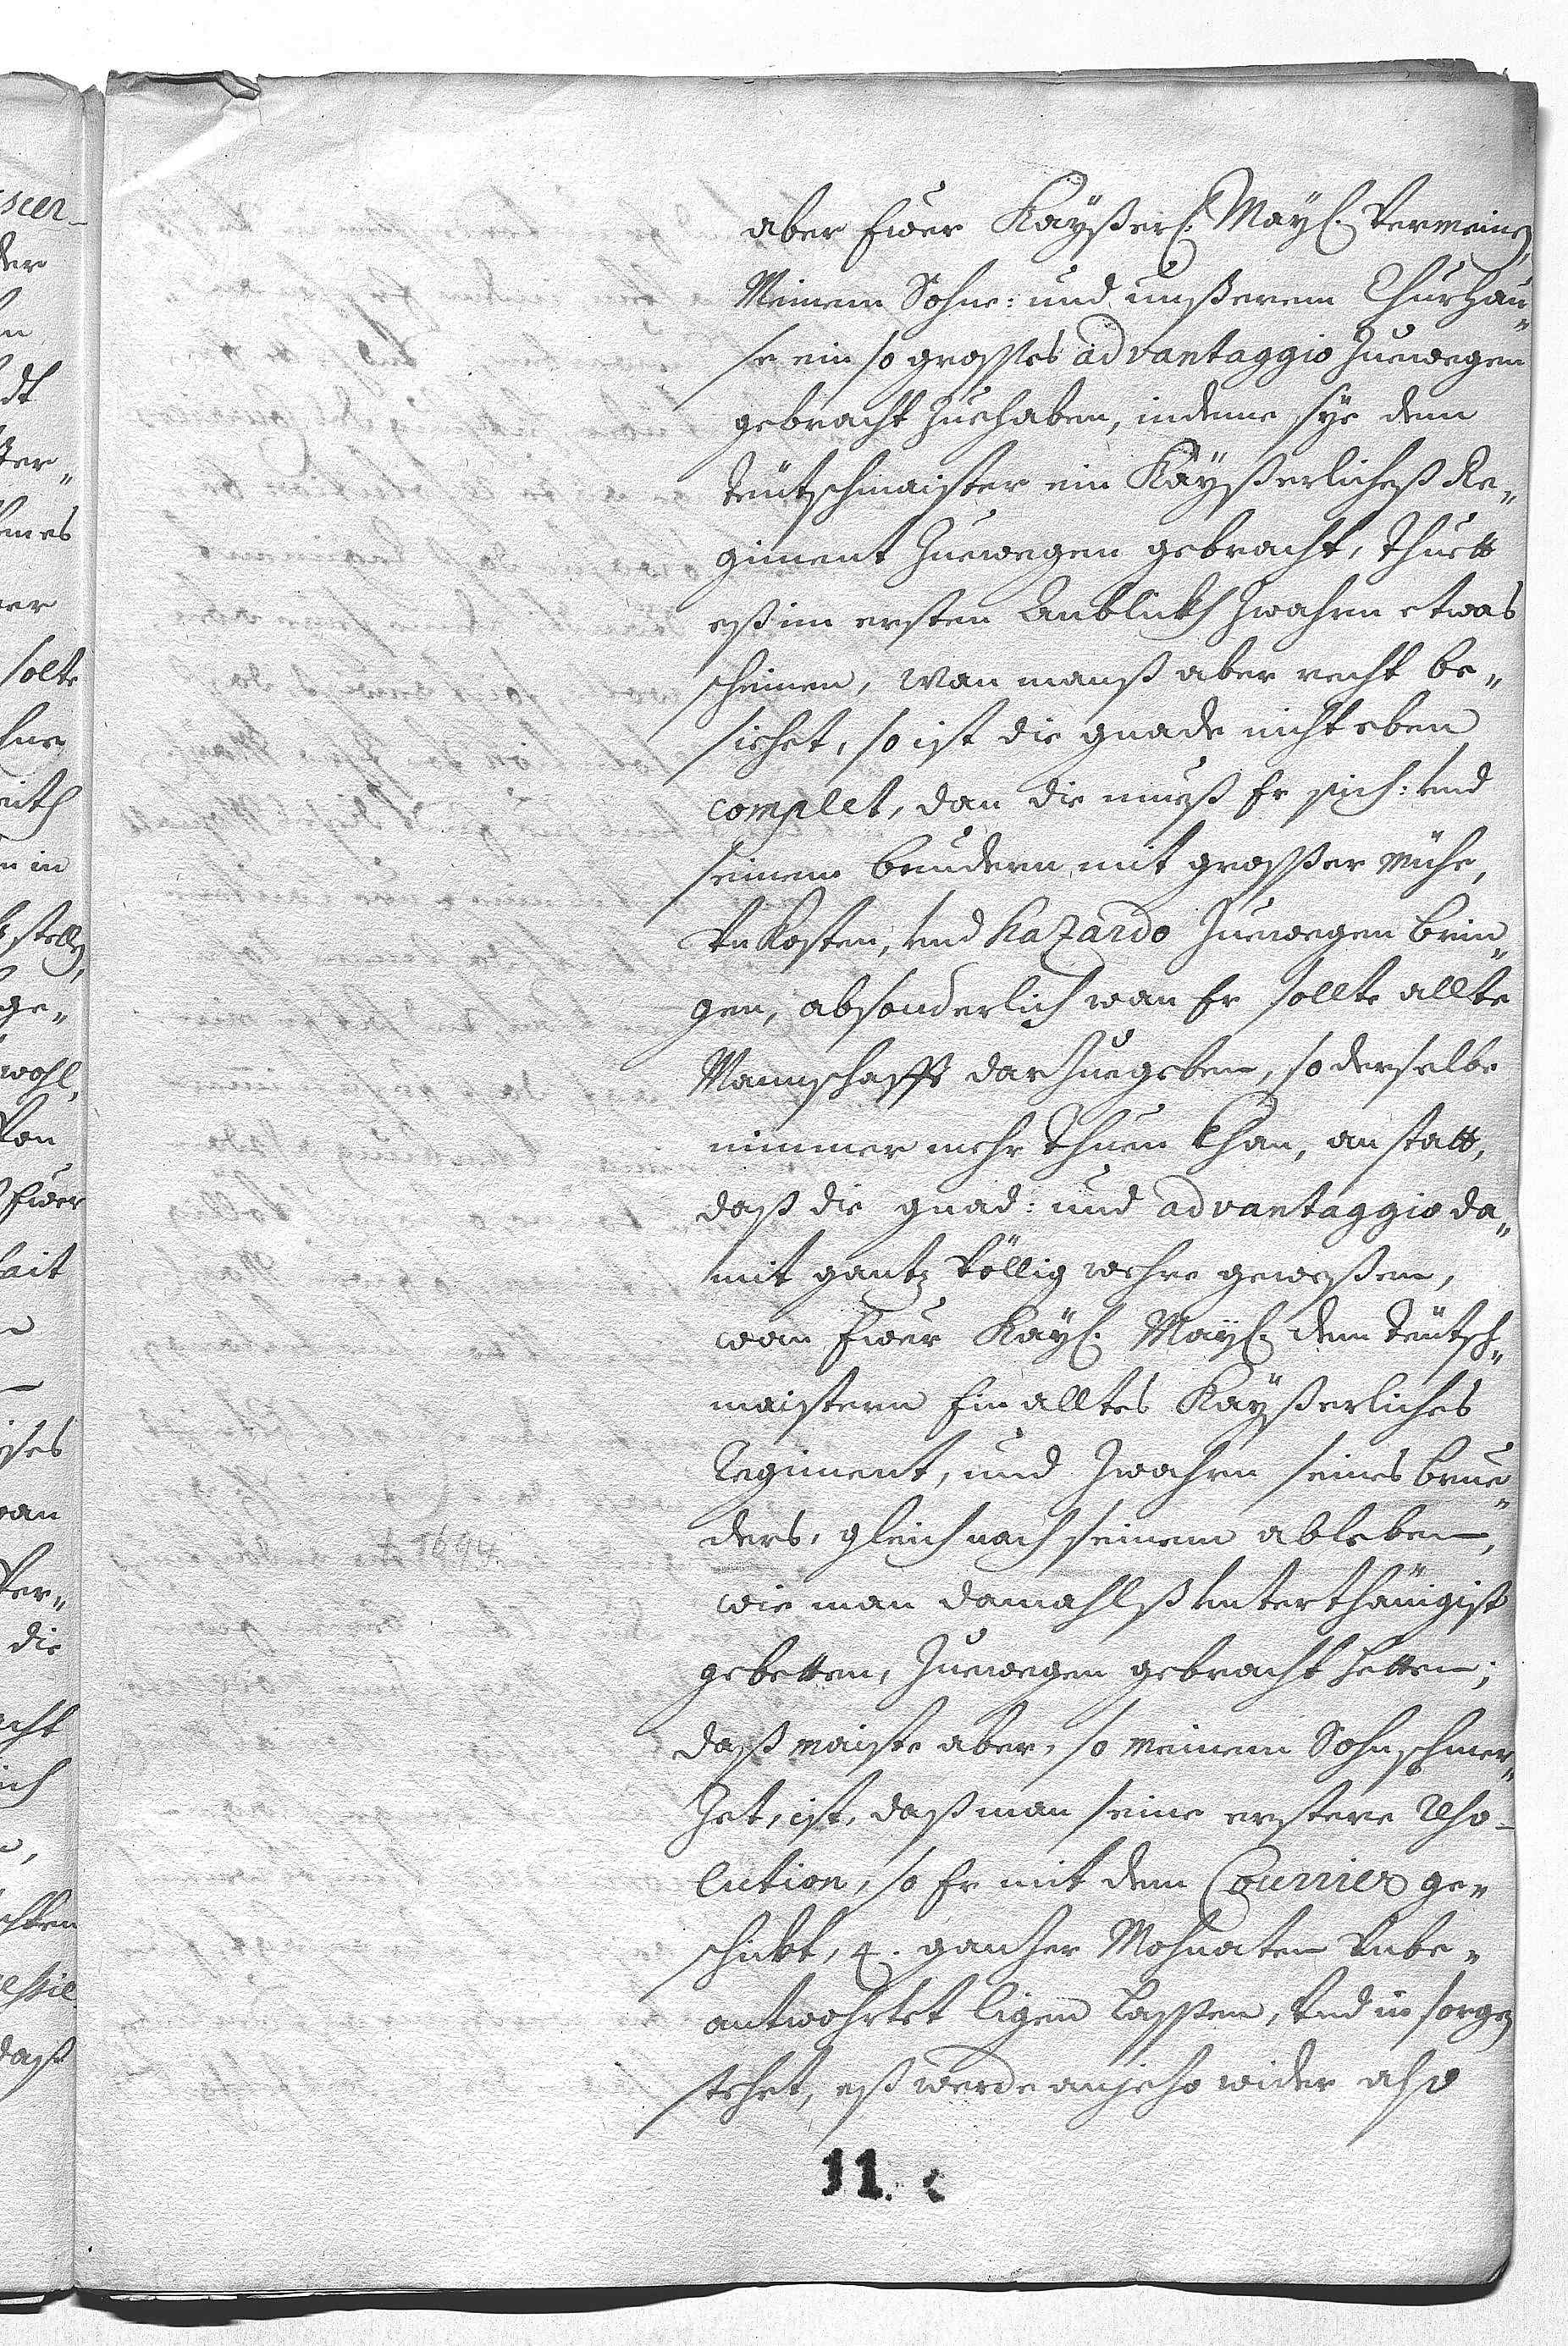 aber Ewer Kayßerl. Mayl. Vermeinen,
Meinem Sohne: und unßerem Churhau„
se ein so grosses advantaggio Zuewegen
gebracht Zuehaben, indeme sye dem
Teütschmaister ein Kayßerlicheß Re„
giment Zuewegen gebracht, thuett
eß im ersten Anblickh Zwahrn etwas
scheinen, wan manß aber recht be„
sichet, so ist die gnade nicht eben
complet, dan die mueß Er sich: und
seinem bruedern mit grosser mühe,
Vnkosten, und hazardo Zuewegen brin„
gen, absonderlich wan Er sollte allte
Mannschafft darZuegeben, so derselbe
nimmer mehr thuen khan, anstatt,
daß die gnad: und advantaggio da„
mit gantz völlig wehre geweßen,
wan Ewer Kayl. Mayl. dem Teütsch„
maistern Ein alltes Kayßerliches
Regiment, und Zwahrn seines brue„
ders, gleich nach seinem ableben,
† 1694.
wie man damahlß unterthänigist
gebetten, Zuewegen gebracht hetten;
daß maiste aber, so meinem Sohn schmer„
Zet, ist, daß man seine erstere Reso-
lution, so Er mit dem Courrier ge„
schickt, 4. ganzer Mohnaten Vnbe„
antwohrtet ligen lassen, Vnd in sorgen
stehet, eß werde anjezo wider also
11.